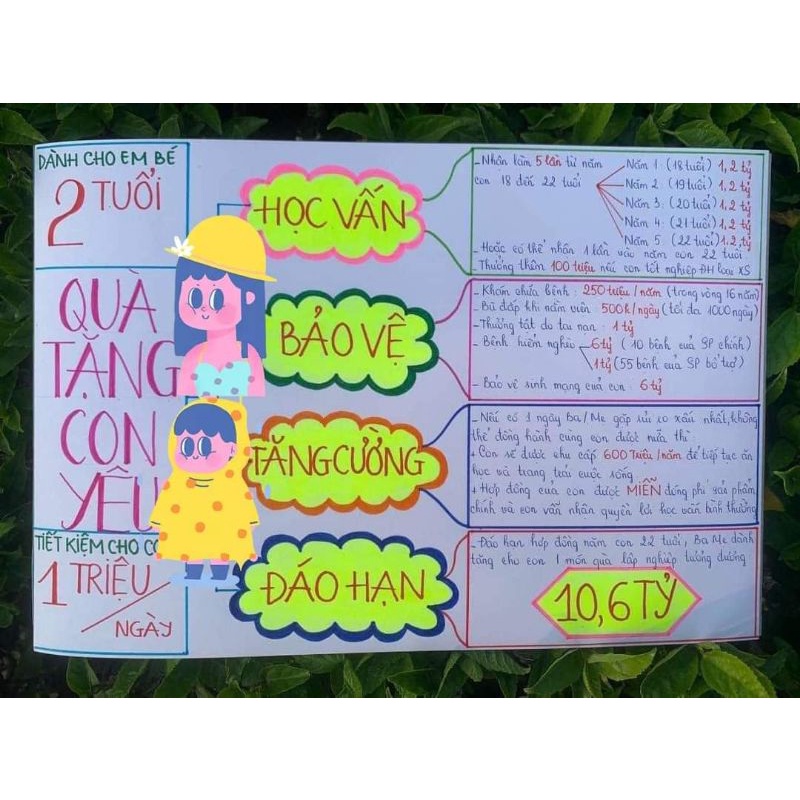 DÀNH CHO EM BÉ
2 TUỔI
QUÀ
TẶNG
CON
YÊU
TIẾT KIỆM CHO
1 TRIỆU/
NGÀY
HỌC VẤN
- Nhận tâm 5 lần từ năm
con 18 đến 22 tuổi
Năm 1: (18 tuổi) 1,2 tỷ
Năm 2: (19 tuổi) 1,2 tỷ
Năm 3: (20 tuổi) 1,2 tỷ
Năm 4: (21 tuổi) 1,2 tỷ
Năm 5 (22 tuổi) 1,2 tỷ
- Hoặc có thể nhận 1 lần vào năm con 22 tuổi
- Thưởng thêm 100 triệu nếu con tốt nghiệp ĐH loại XS
BẢO VỆ
- Khám chữa bệnh: 250 triệu/năm (trong vòng 16 năm)
- Bù đắp khi nằm viện: 500k/ngày (tối đa 1000 ngày)
- Thương tật do tai nạn: 1 tỷ
- Bệnh hiểm nghèo 6 tỷ (10 bệnh của SP chính)
1 tỷ (55 bệnh của SP bổ trợ)
- Bảo vệ sinh mạng của con: 6 tỷ
TĂNG CƯỜNG
- Nếu có 1 ngày Ba/Mẹ gặp rủi ro xấu nhất, không
thể đồng hành cùng con được nữa thì
+ Con sẽ được chu cấp 600 triệu/năm để tiếp tục ăn
học và trang trải cuộc sống
+ Hợp đồng của con được MIỄN đóng phí sản phẩm
chính và con vẫn nhận quyền lợi học vấn bình thường
ĐÁO HẠN
- Đáo hạn hợp đồng năm con 22 tuổi, Ba Mẹ dành
tặng cho con 1 món quà lập nghiệp tương đương
10,6 TỶ